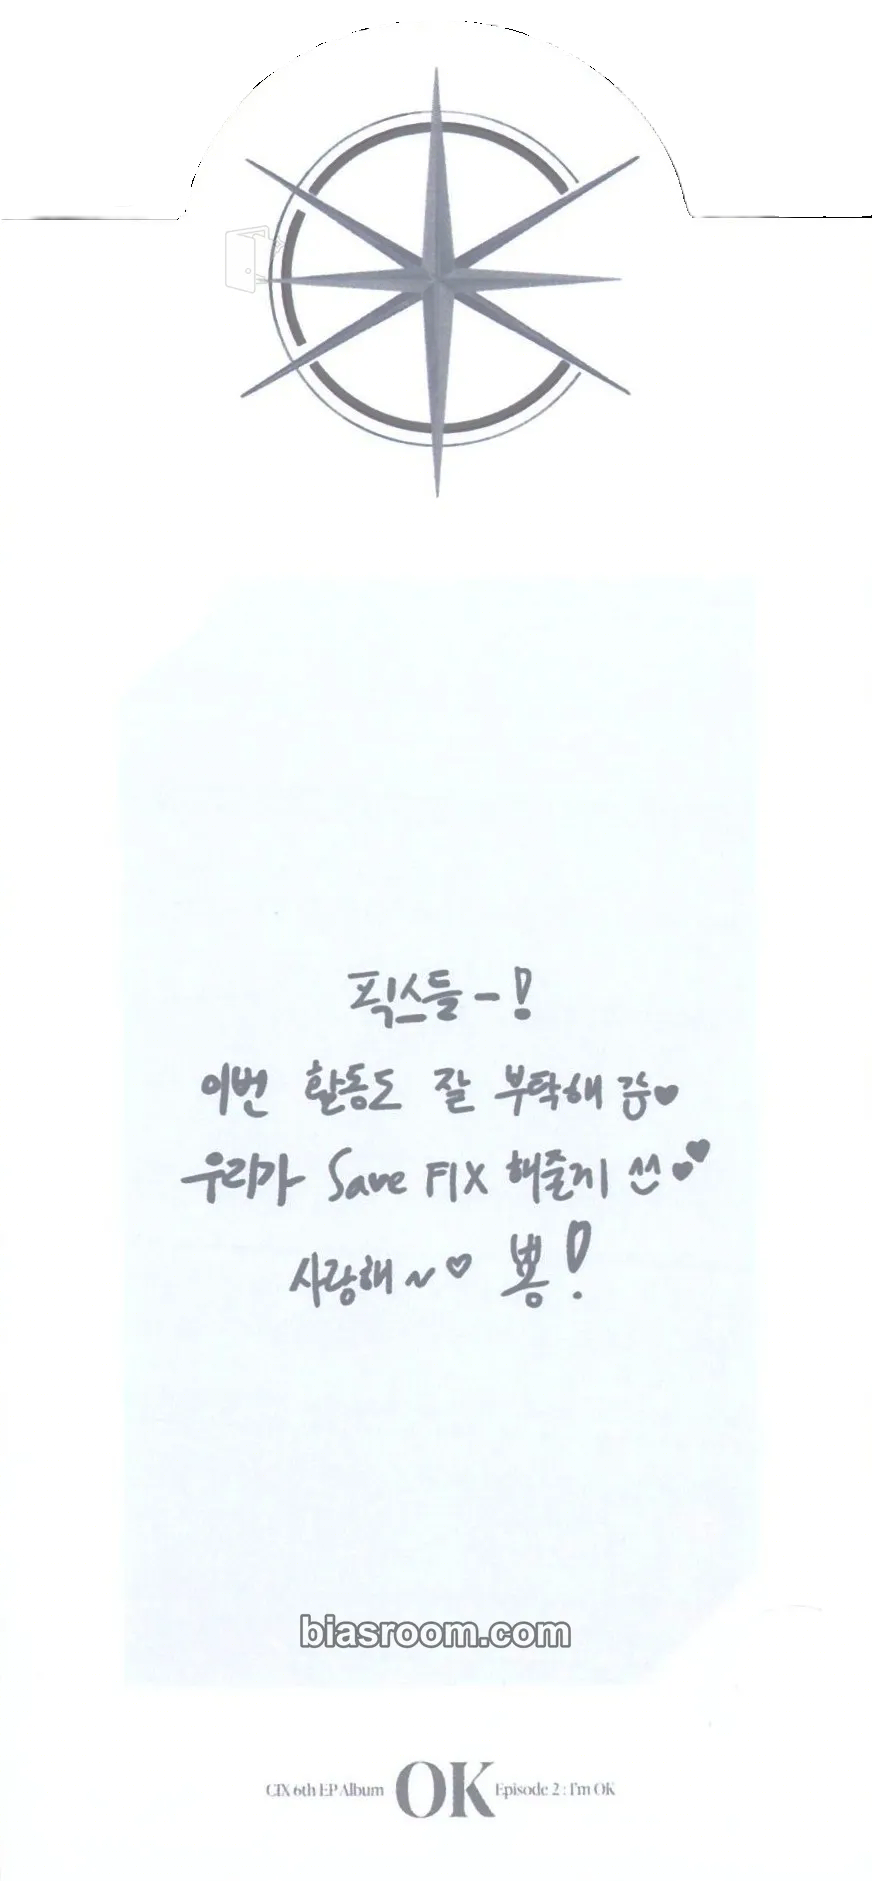 픽스들-!
이번 활동도 잘 부탁해 금♥
우리가 Save FIX 해줄게 쓰♥♥
사랑해~♡ 뿅!
biasroom.com
CIX 6th EP Album OK Episode 2 : I'm OK